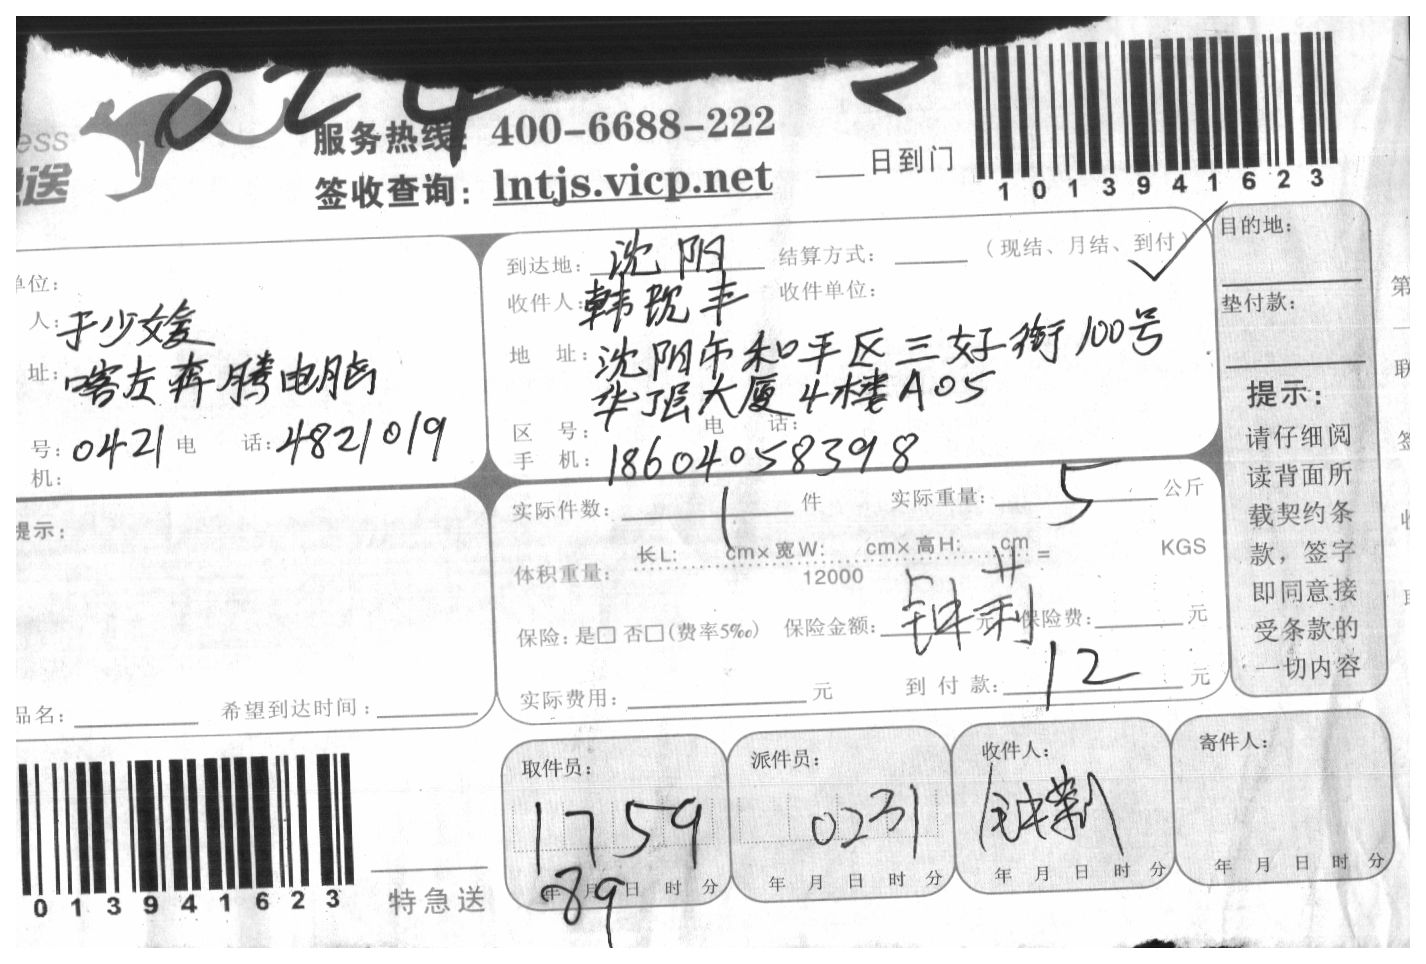 024
ess
送
服务热线: 400-6688-222
签收查询: lntjs.vicp.net
日到门
1013941623
单位:
人: 于少媛
址: 喀左奔腾电脑
号: 0421 电 话: 4821019
机:
到达地: 沈阳 结算方式: (现结、月结、到付)
收件人: 韩 丰 收件单位:
地 址: 沈阳市和平区三好街100号
华强大厦4楼A05
区 号: 电 话:
手 机: 18604058398
目的地:
垫付款:
提示:
请仔细阅
读背面所
载契约条
款，签字
即同意接
受条款的
一切内容
提示:
品名: 希望到达时间:
实际件数: 1 件 实际重量: 5 公斤
体积重量: 长L: cm×宽W: cm×高H: cm = KGS
12000
保险: 是□ 否□(费率5‰) 保险金额: 元 保险费: 元
实际费用: 元 到 付 款: 12 元
013941623
特急送
取件员:
1759
89
年 月 日 时 分
派件员:
0231
年 月 日 时 分
收件人:
年 月 日 时 分
寄件人:
年 月 日 时 分
第
联